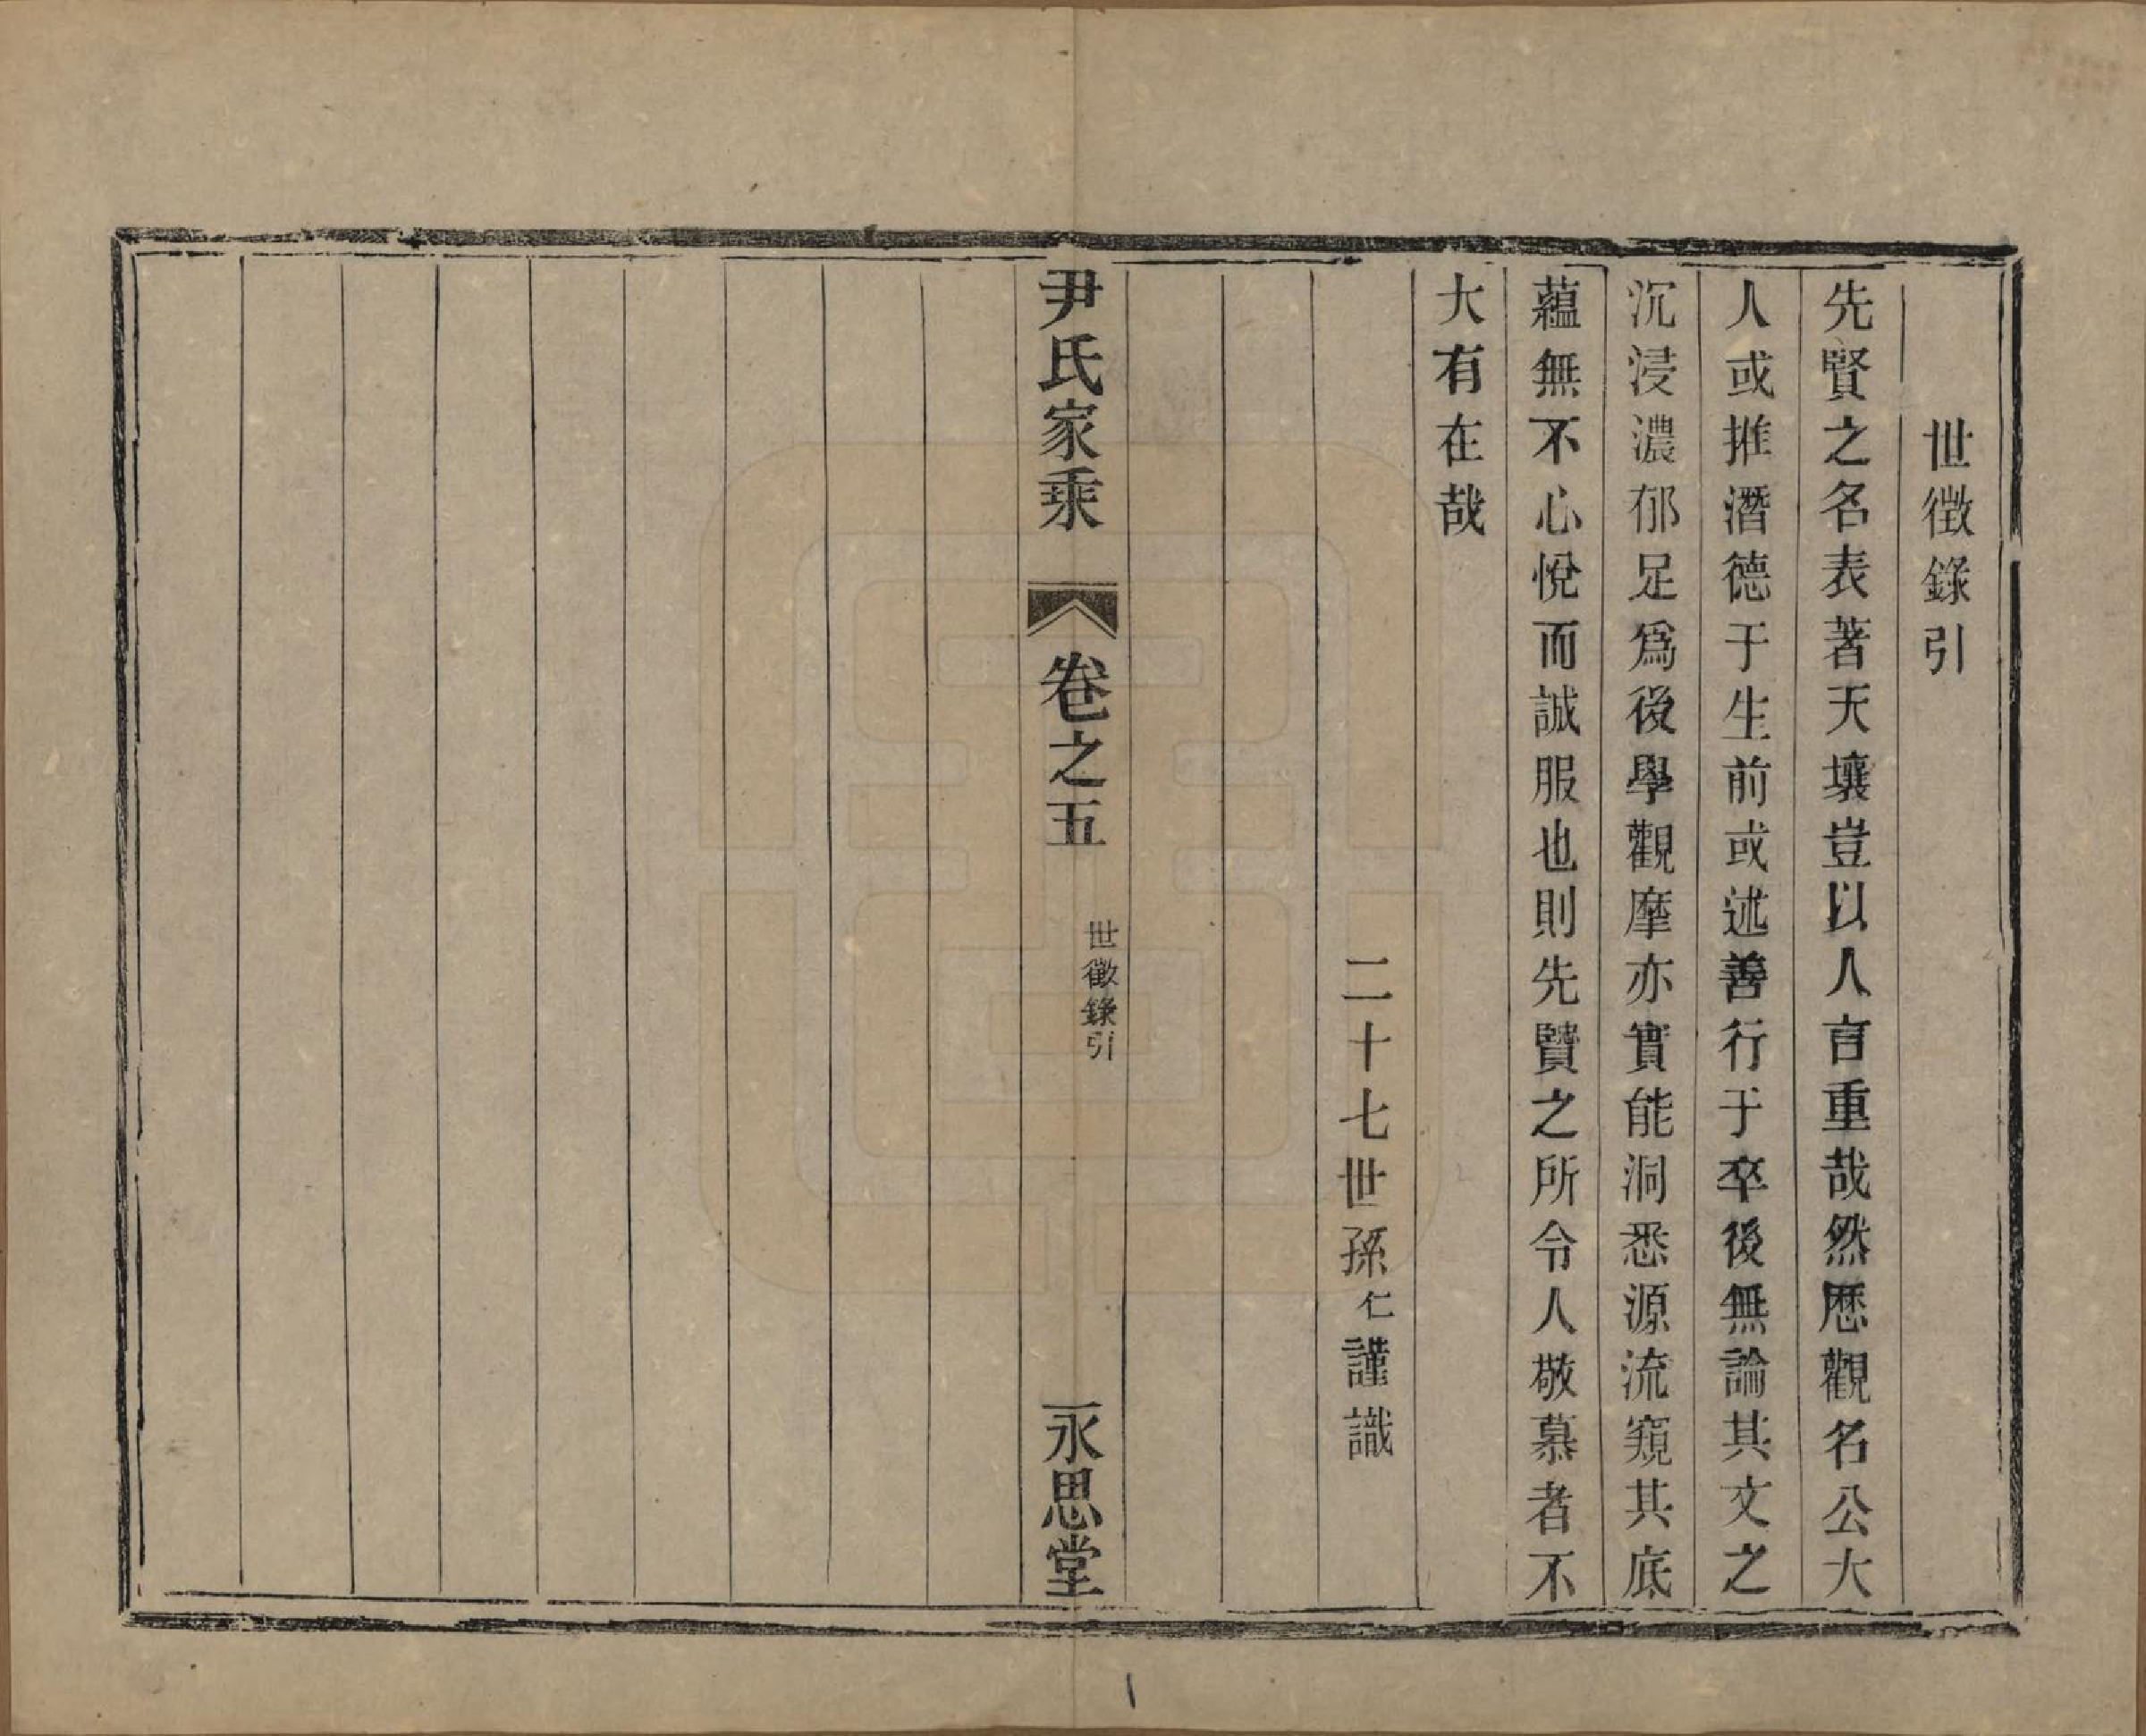 世徴錄引
先賢之名表著天壤豈以人言重哉然歴觀名公大
人或推潛德于生前或述善行于卒後無論其文之
沉浸濃郁足爲後學觀摩亦實能洞悉源流窺其底
蘊無不心悅而誠服也則先賢之所令人敬慕者不
大有在哉
二十七世孫仁謹識
尹氏家乘
卷之五
世徵錄引
一
永思堂